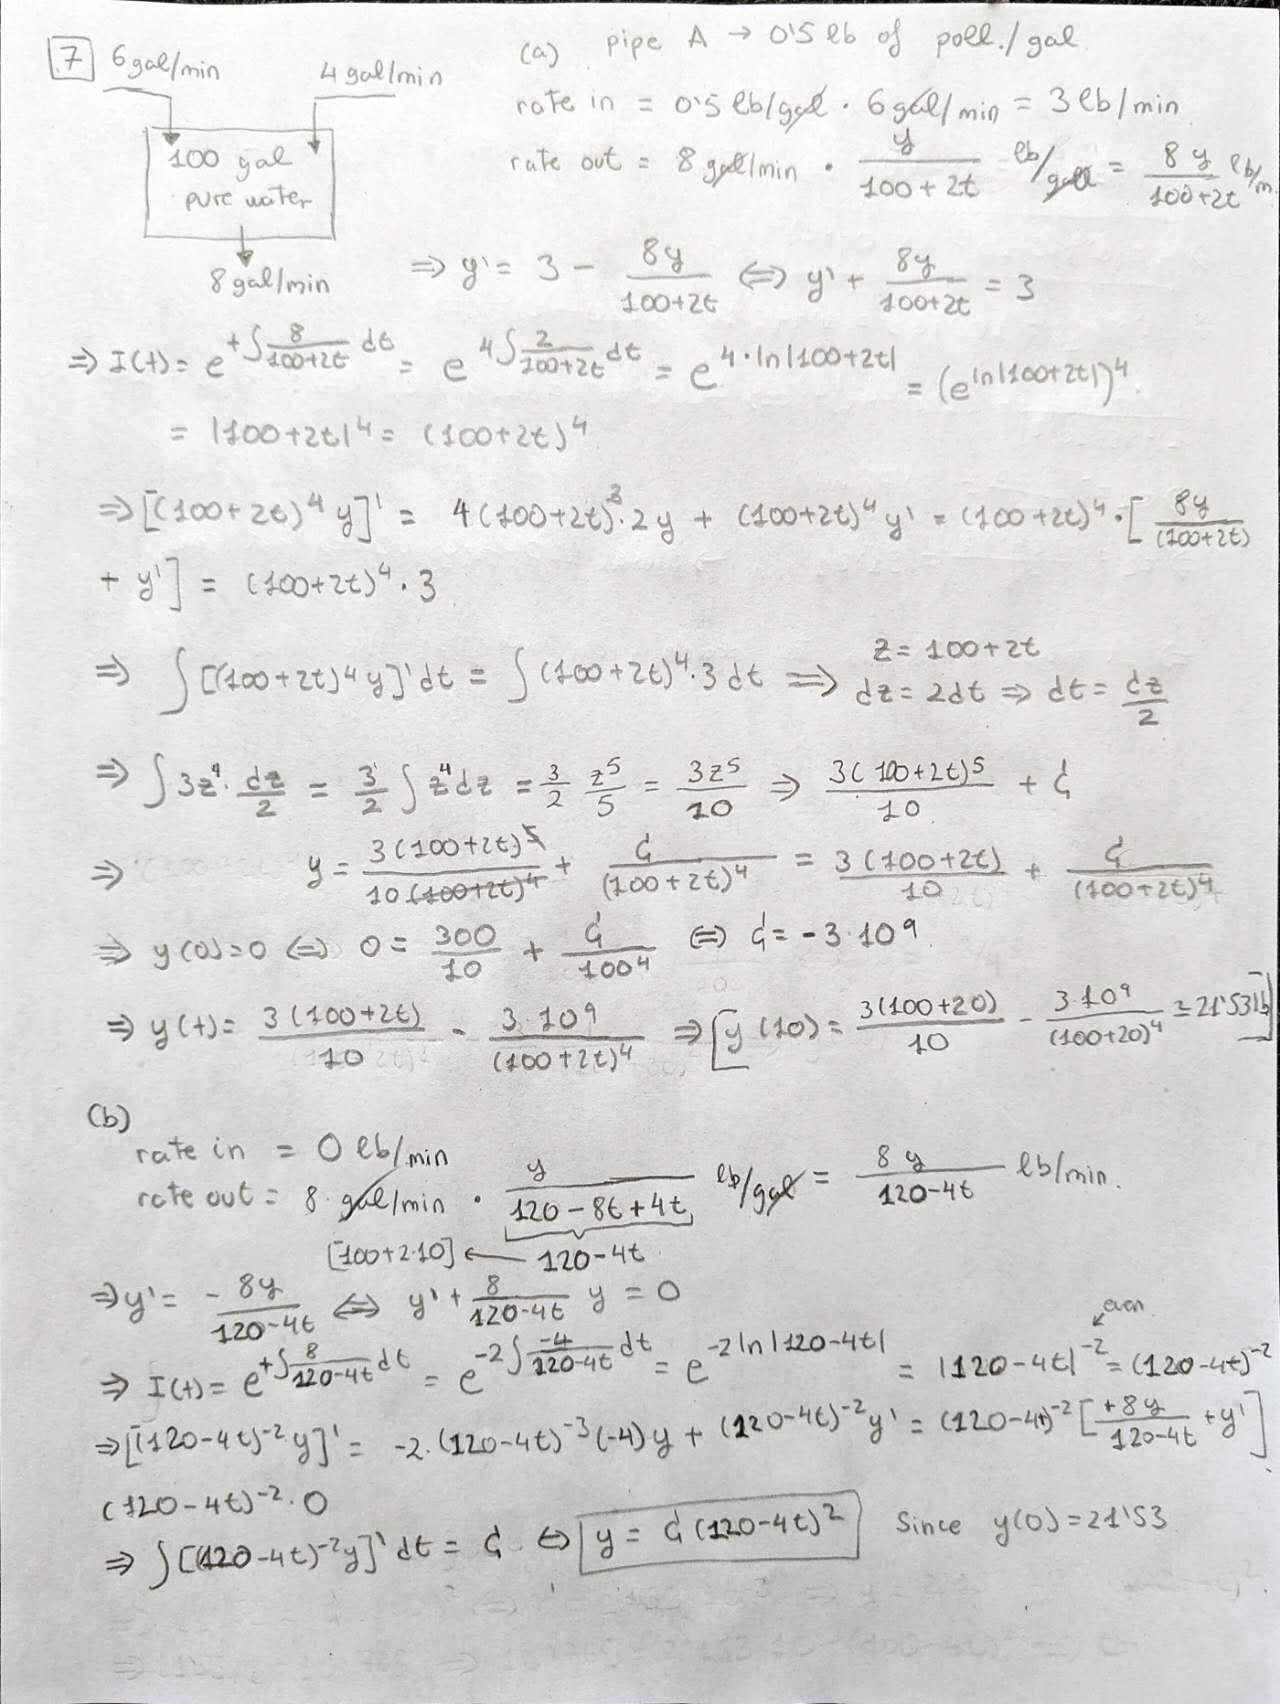 7 6 gal/min 4 gal/min
100 gal
pure water
8 gal/min
(a) pipe A → 0'5 lb of poll./gal
rate in = 0'5 lb/gal · 6 gal/min = 3 lb/min
rate out = 8 gal/min · y/(100+2t) lb/gal = 8y/(100+2t) lb/m
⇒ y' = 3 − 8y/(100+2t) ⇔ y' + 8y/(100+2t) = 3
⇒ I(t) = e^(+∫ 8/(100+2t) dt) = e^(4∫ 2/(100+2t) dt) = e^(4·ln|100+2t|) = (e^(ln|100+2t|))^4
= |100+2t|^4 = (100+2t)^4
⇒ [(100+2t)^4 y]' = 4(100+2t)^3 · 2y + (100+2t)^4 y' = (100+2t)^4 · [8y/(100+2t)
+ y'] = (100+2t)^4 · 3
⇒ ∫ [(100+2t)^4 y]' dt = ∫ (100+2t)^4 · 3 dt ⇒ z = 100+2t
dz = 2dt ⇒ dt = dz/2
⇒ ∫ 3z^4 · dz/2 = 3/2 ∫ z^4 dz = 3/2 z^5/5 = 3z^5/10 ⇒ 3(100+2t)^5/10 + C
⇒ y = 3(100+2t)^5/(10·(100+2t)^4) + C/(100+2t)^4 = 3(100+2t)/10 + C/(100+2t)^4
⇒ y(0)=0 ⇔ 0 = 300/10 + C/100^4 ⇔ C = −3·10^9
⇒ y(t) = 3(100+2t)/10 − 3·10^9/(100+2t)^4 ⇒ [y(10) = 3(100+20)/10 − 3·10^9/(100+20)^4 = 21'53 lb]
(b)
rate in = 0 lb/min
rate out = 8 · gal/min · y/(120−8t+4t) lb/gal = 8y/(120−4t) lb/min.
[100+2·10] ← 120−4t
⇒ y' = −8y/(120−4t) ⇔ y' + 8/(120−4t) y = 0
even
⇒ I(t) = e^(+∫ 8/(120−4t) dt) = e^(−2∫ −4/(120−4t) dt) = e^(−2 ln|120−4t|) = |120−4t|^−2 = (120−4t)^−2
⇒ [(120−4t)^−2 y]' = −2·(120−4t)^−3 (−4)y + (120−4t)^−2 y' = (120−4t)^−2 [+8y/(120−4t) + y']
(120−4t)^−2 · 0
⇒ ∫ [(120−4t)^−2 y]' dt = C ⇔ y = C(120−4t)^2 Since y(0) = 21'53